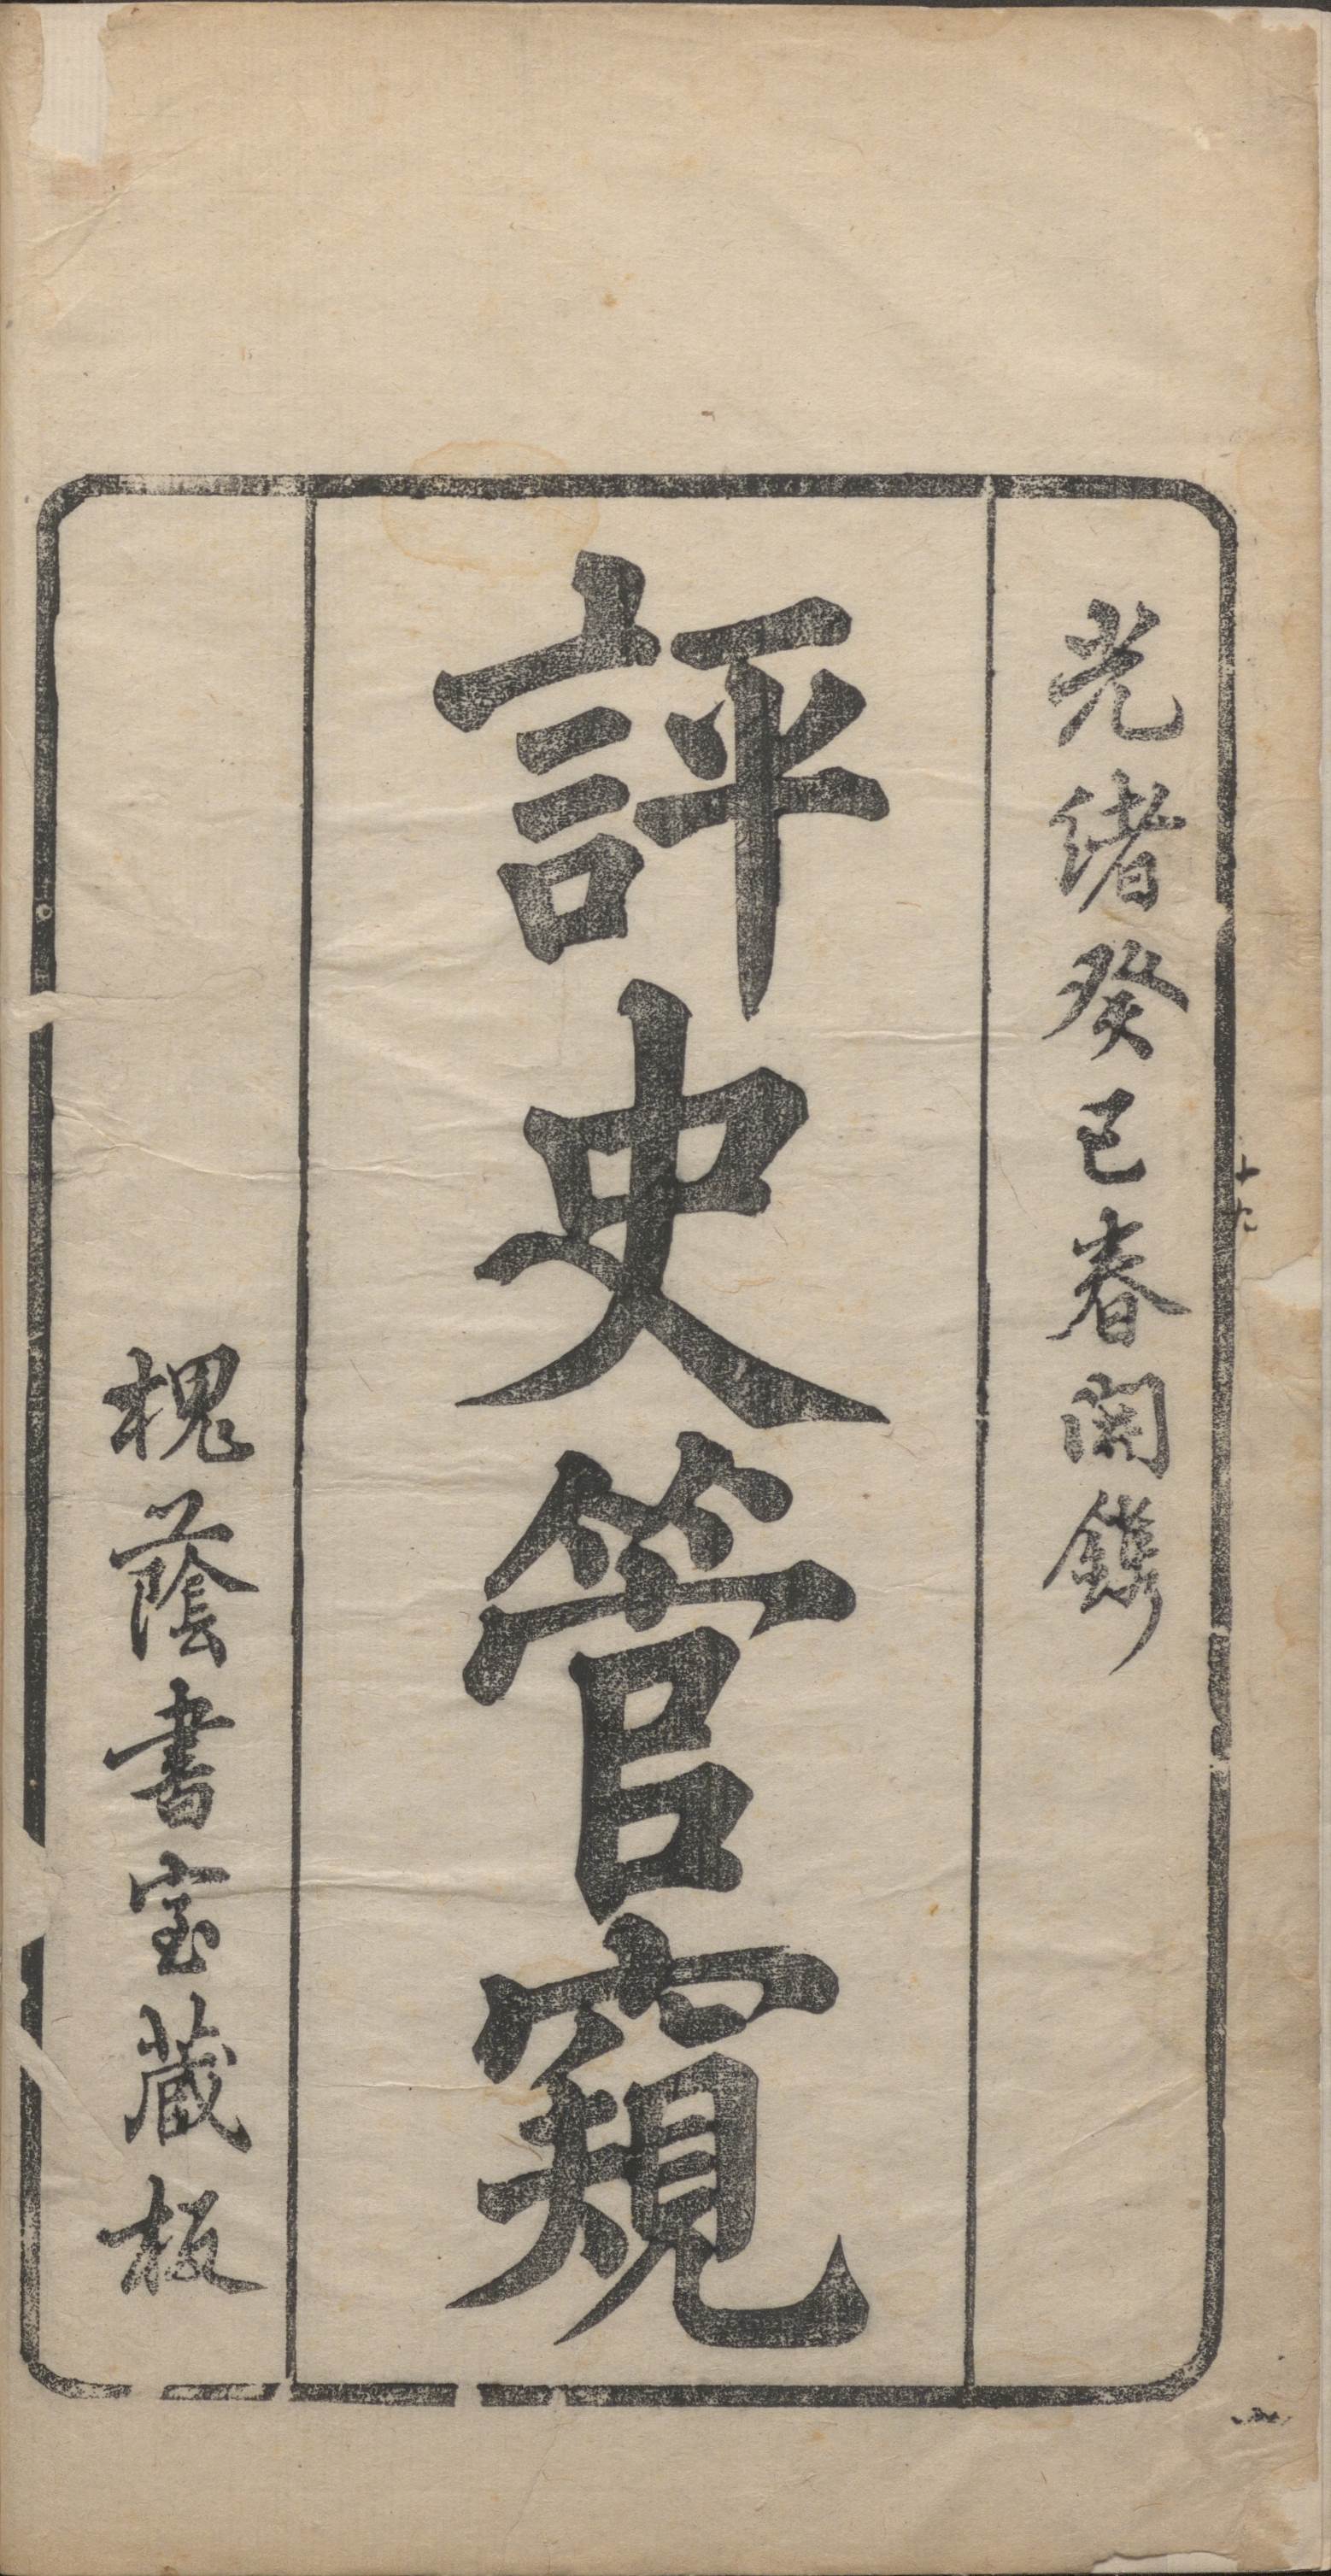 光緒癸巳春開鐫
評史管窺
槐蔭書室藏板